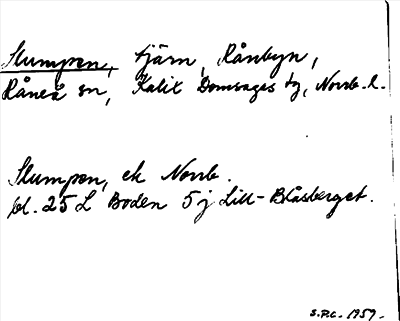 Slumpen, tjärn, Rånbyn,
Råneå sn, Kalix Domsagas tg, Norrb. l.
Slumpen, ek Norrb.
bl. 25 L Boden 5 j Lill-Blåsberget.
S.P.C. 1959.